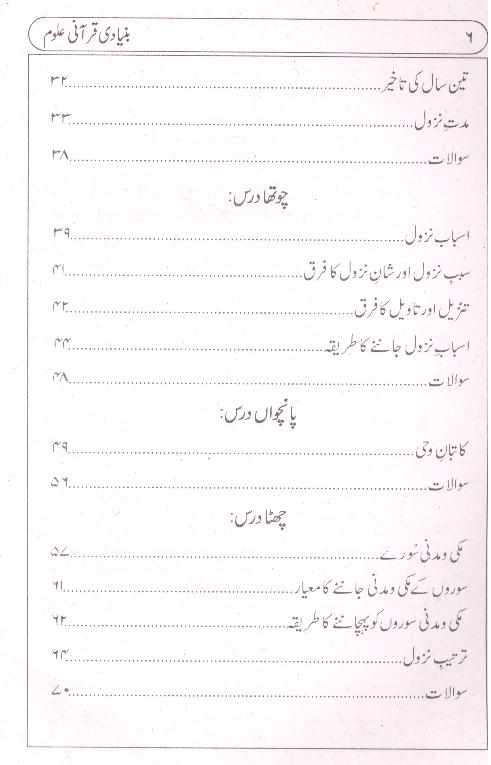 ۶ بنیادی قرآنی علوم
تین سال کی تاخیر........................۳۲
مدتِ نزول........................۳۳
سوالات........................۳۸
چوتھا درس:
اسباب نزول........................۳۹
سببِ نزول اور شانِ نزول کا فرق........................۴۱
تنزیل اور تاویل کا فرق........................۴۲
اسبابِ نزول جاننے کا طریقہ........................۴۴
سوالات........................۴۸
پانچواں درس:
کاتبانِ وحی........................۴۹
سوالات........................۵۶
چھٹا درس:
مکی و مدنی سُورے........................۵۷
سوروں کے مکی و مدنی جاننے کا معیار........................۶۱
مکی و مدنی سوروں کو پہچاننے کا طریقہ........................۶۲
ترتیبِ نزول........................۶۴
سوالات........................۷۰